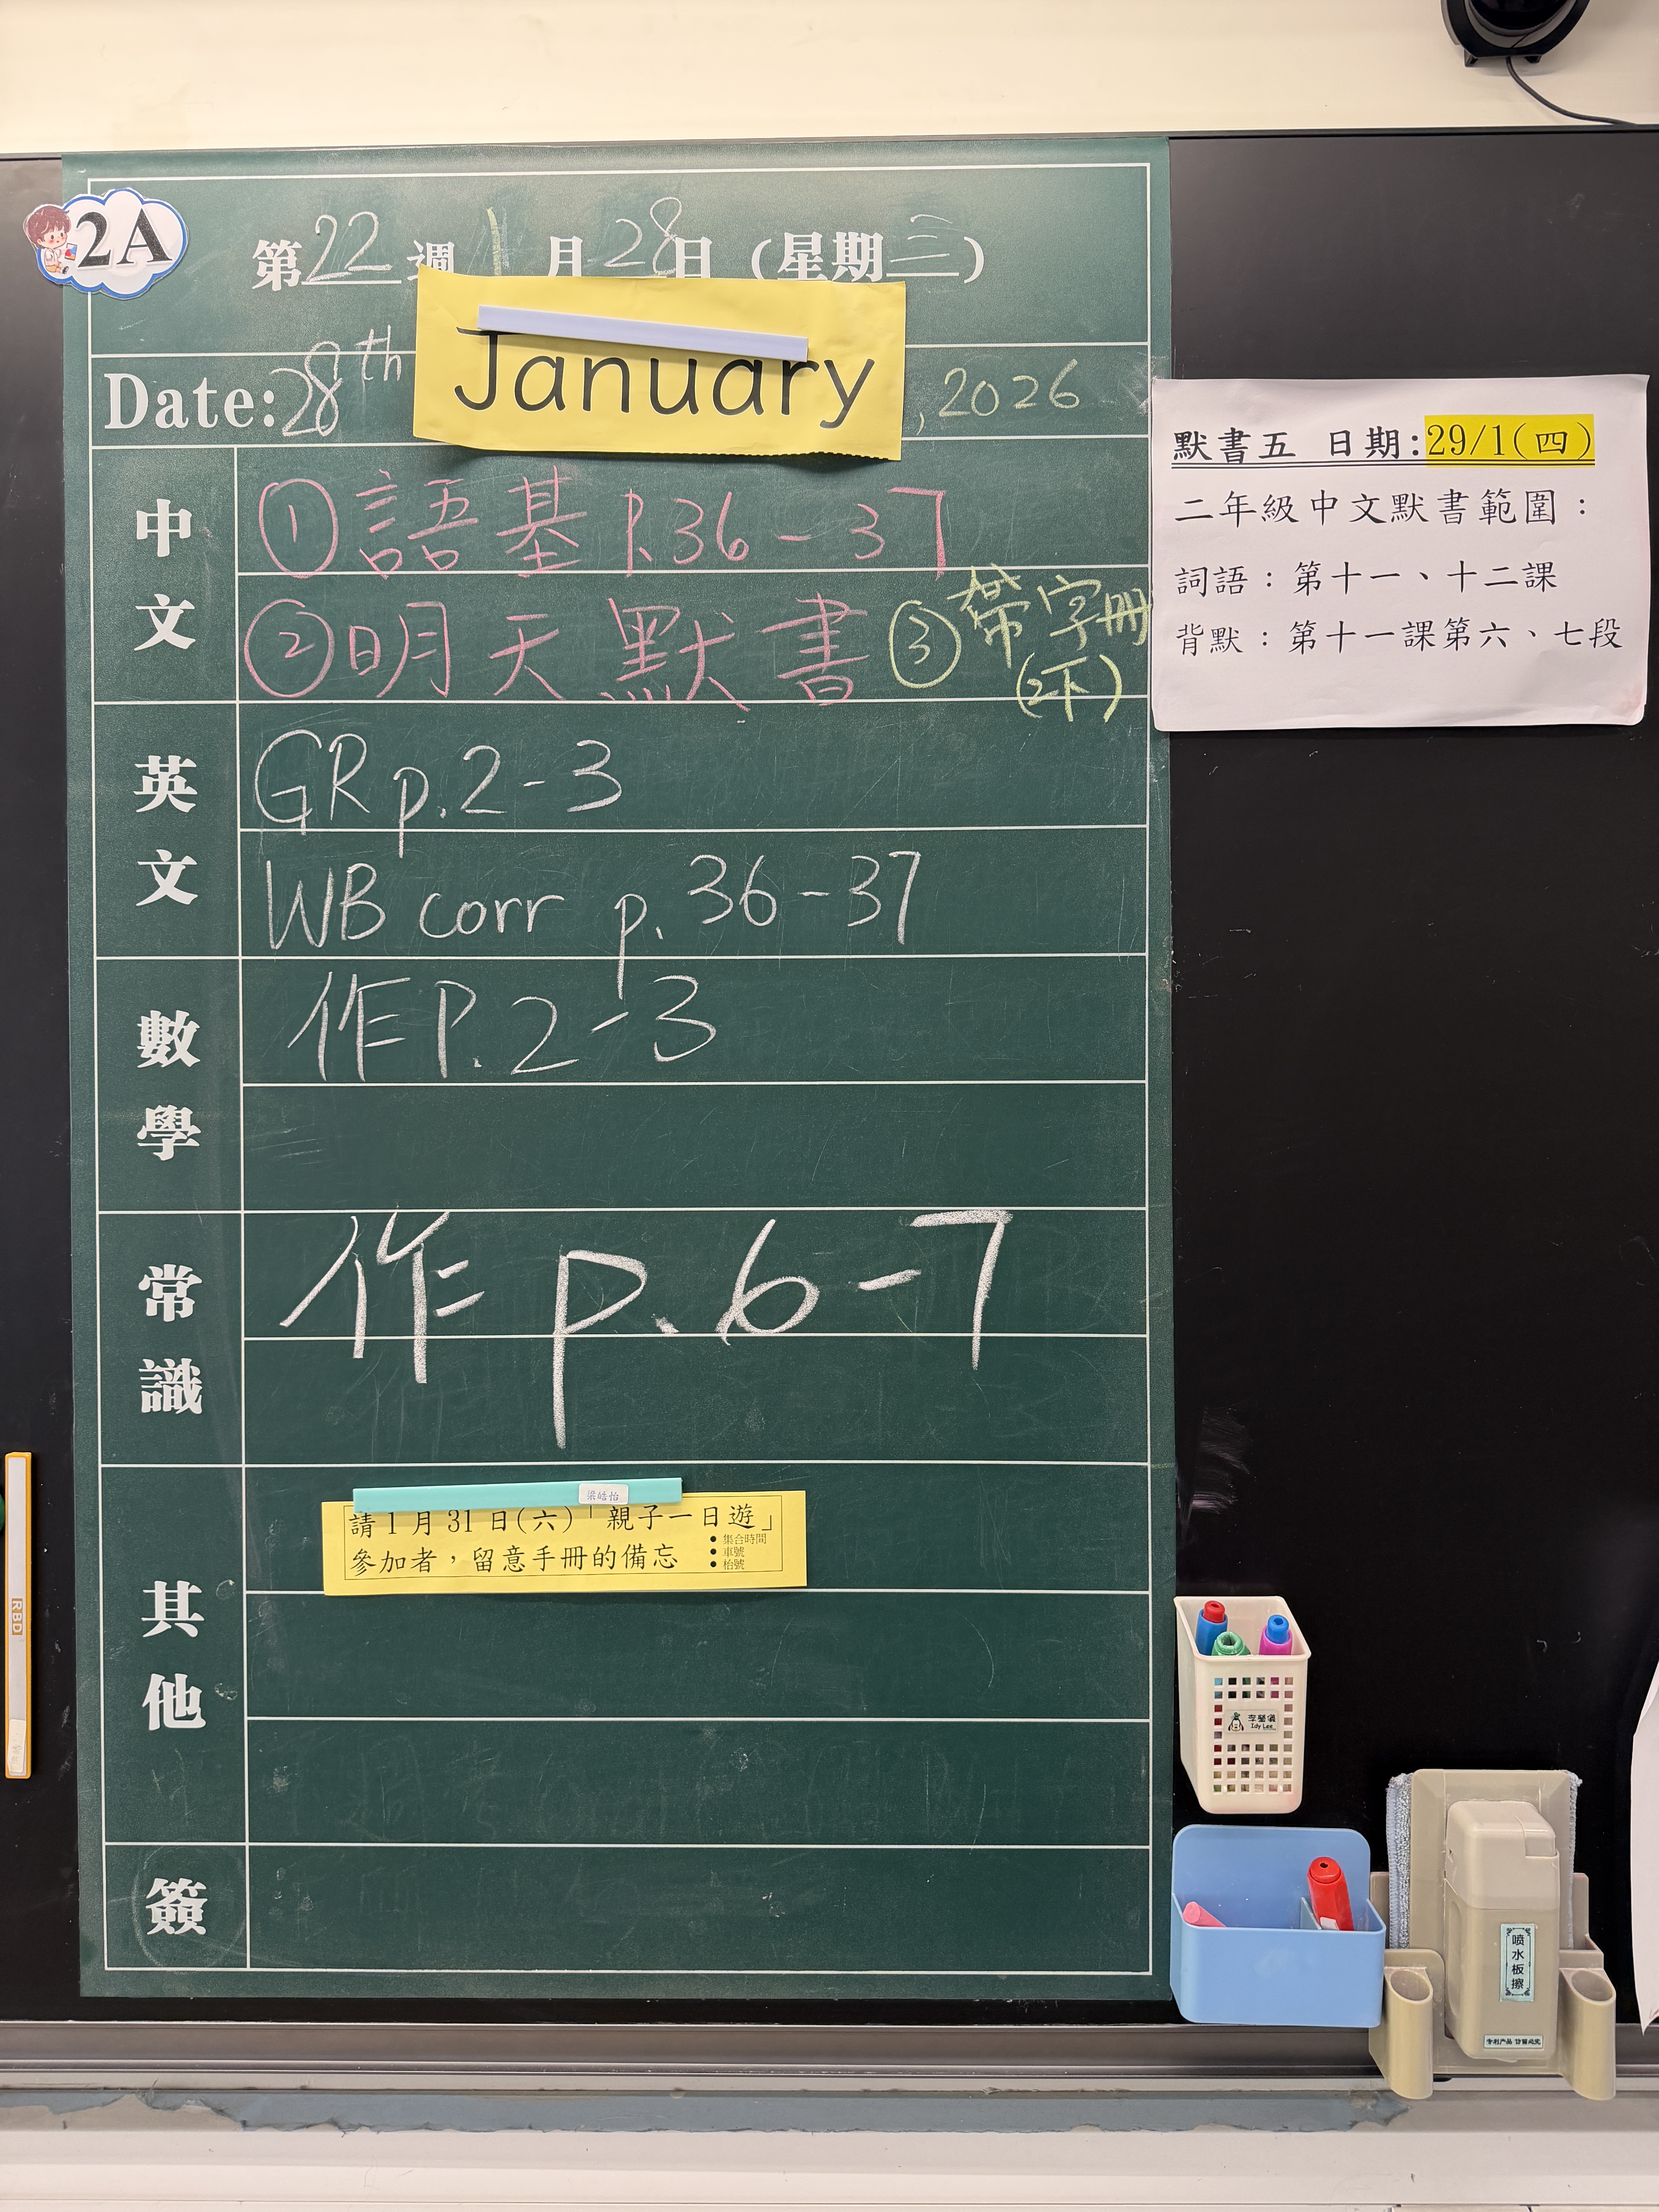 2A
第22週 1月28日（星期三）
Date: 28th January, 2026
中文
①語基 P.36-37
②明天默書 ③帶字冊
(2下)
英文
GR p.2-3
WB corr p. 36-37
數學
作P.2-3
常識
作 p.6-7
其他
梁皓怡
請1月31日(六)「親子一日遊」
參加者，留意手冊的備忘
• 集合時間
• 車號
• 枱號
簽
默書五 日期:29/1(四)
二年級中文默書範圍：
詞語：第十一、十二課
背默：第十一課第六、七段
RBD
Idy Lee
喷水板擦
专利产品 仿冒必究